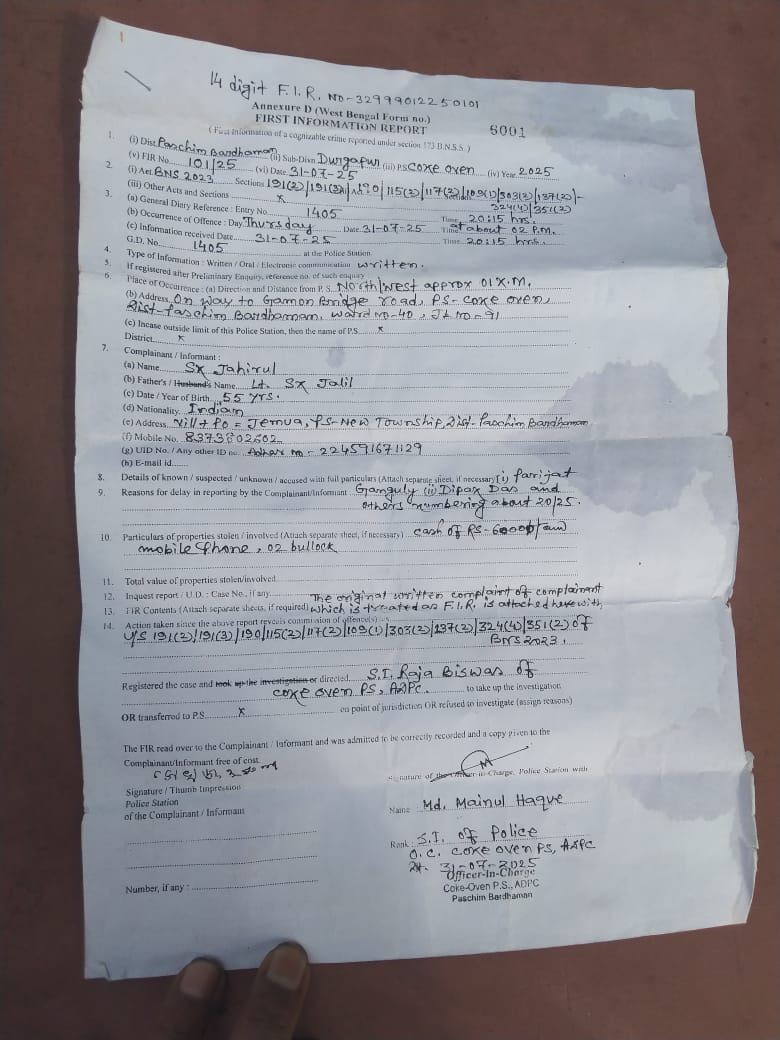 14 digit F.I.R. No-32999012250101
Annexure D (West Bengal Form no.) 6001
FIRST INFORMATION REPORT
(First information of a cognizable crime reported under section 173 B.N.S.S.)
1. (i) Dist Paschim Bardhaman (ii) Sub-Divn Durgapur (iii) PS Coke oven (iv) Year 2025
(v) FIR No. 101/25 (vi) Date 31-07-25
2. (i) Act BNS 2023 Sections 191(2)/191(3)/190/115(2)/117(2)/109(1)/303(2)/137(2)/-
324(4)/351(2)
(iii) Other Acts and Sections x
3. (a) General Diary Reference : Entry No. 1405 Time 20:15 hrs.
(b) Occurrence of Offence : Day Thursday Date 31-07-25 Time at about 02 P.M.
(c) Information received Date 31-07-25 Time 20:15 hrs.
G.D. No. 1405 at the Police Station
4. Type of Information : Written / Oral / Electronic communication written.
5. If registered after Preliminary Enquiry, reference no. of such enquiry
6. Place of Occurrence : (a) Direction and Distance from P. S. North/west approx 01 K.M.
(b) Address On way to Gamon Bridge road, PS- coke oven,
Dist- Paschim Bardhaman, ward no-40, JL NO-91
(c) Incase outside limit of this Police Station, then the name of P.S. x
District x
7. Complainant / Informant :
(a) Name Sk Jahirul
(b) Father's / Husband's Name Lt. Sk Jalil
(c) Date / Year of Birth 55 yrs.
(d) Nationality Indian
(e) Address vill + Po = Jemua, PS- New Township, Dist- Paschim Bardhaman
(f) Mobile No. 8373802602
(g) UID No. / Any other ID no. Adhar no - 224591671129
(h) E-mail id
8. Details of known / suspected / unknown / accused with full particulars (Attach separate sheet, if necessary) (i) Parijat
9. Reasons for delay in reporting by the Complainant/Informant Ganguly (ii) Dipak Das and
others numbering about 20/25.
10. Particulars of properties stolen / involved (Attach separate sheet, if necessary) cash of RS-
mobile Phone, 02 bullock
11. Total value of properties stolen/involved
12. Inquest report / U.D. : Case No., if any The original written complaint of complainant
13. FIR Contents (Attach separate sheets, if required) which is treated as F.I.R. is attached herewith
14. Action taken since the above report reveals commission of offence(s)
u/s 191(2)/191(3)/190/115(2)/117(2)/109(1)/303(2)/137(2)/324(4)/351(2) of
BNS 2023.
Registered the case and took up the investigation or directed S.I. Raja Biswas of
coke oven PS, ADPC. to take up the investigation
OR transferred to P.S. x on point of jurisdiction OR refused to investigate (assign reasons)
The FIR read over to the Complainant / Informant and was admitted to be correctly recorded and a copy given to the
Complainant/Informant free of cost
Signature of the Officer in-Charge, Police Station with
Signature / Thumb Impression
Police Station
of the Complainant / Informant
Name Md. Mainul Haque
Rank : S.I. of Police
O.C. coke oven PS, ADPC
Dt. 31-07-2025
Officer-In-Charge
Coke-Oven P.S., ADPC
Paschim Bardhaman
Number, if any :